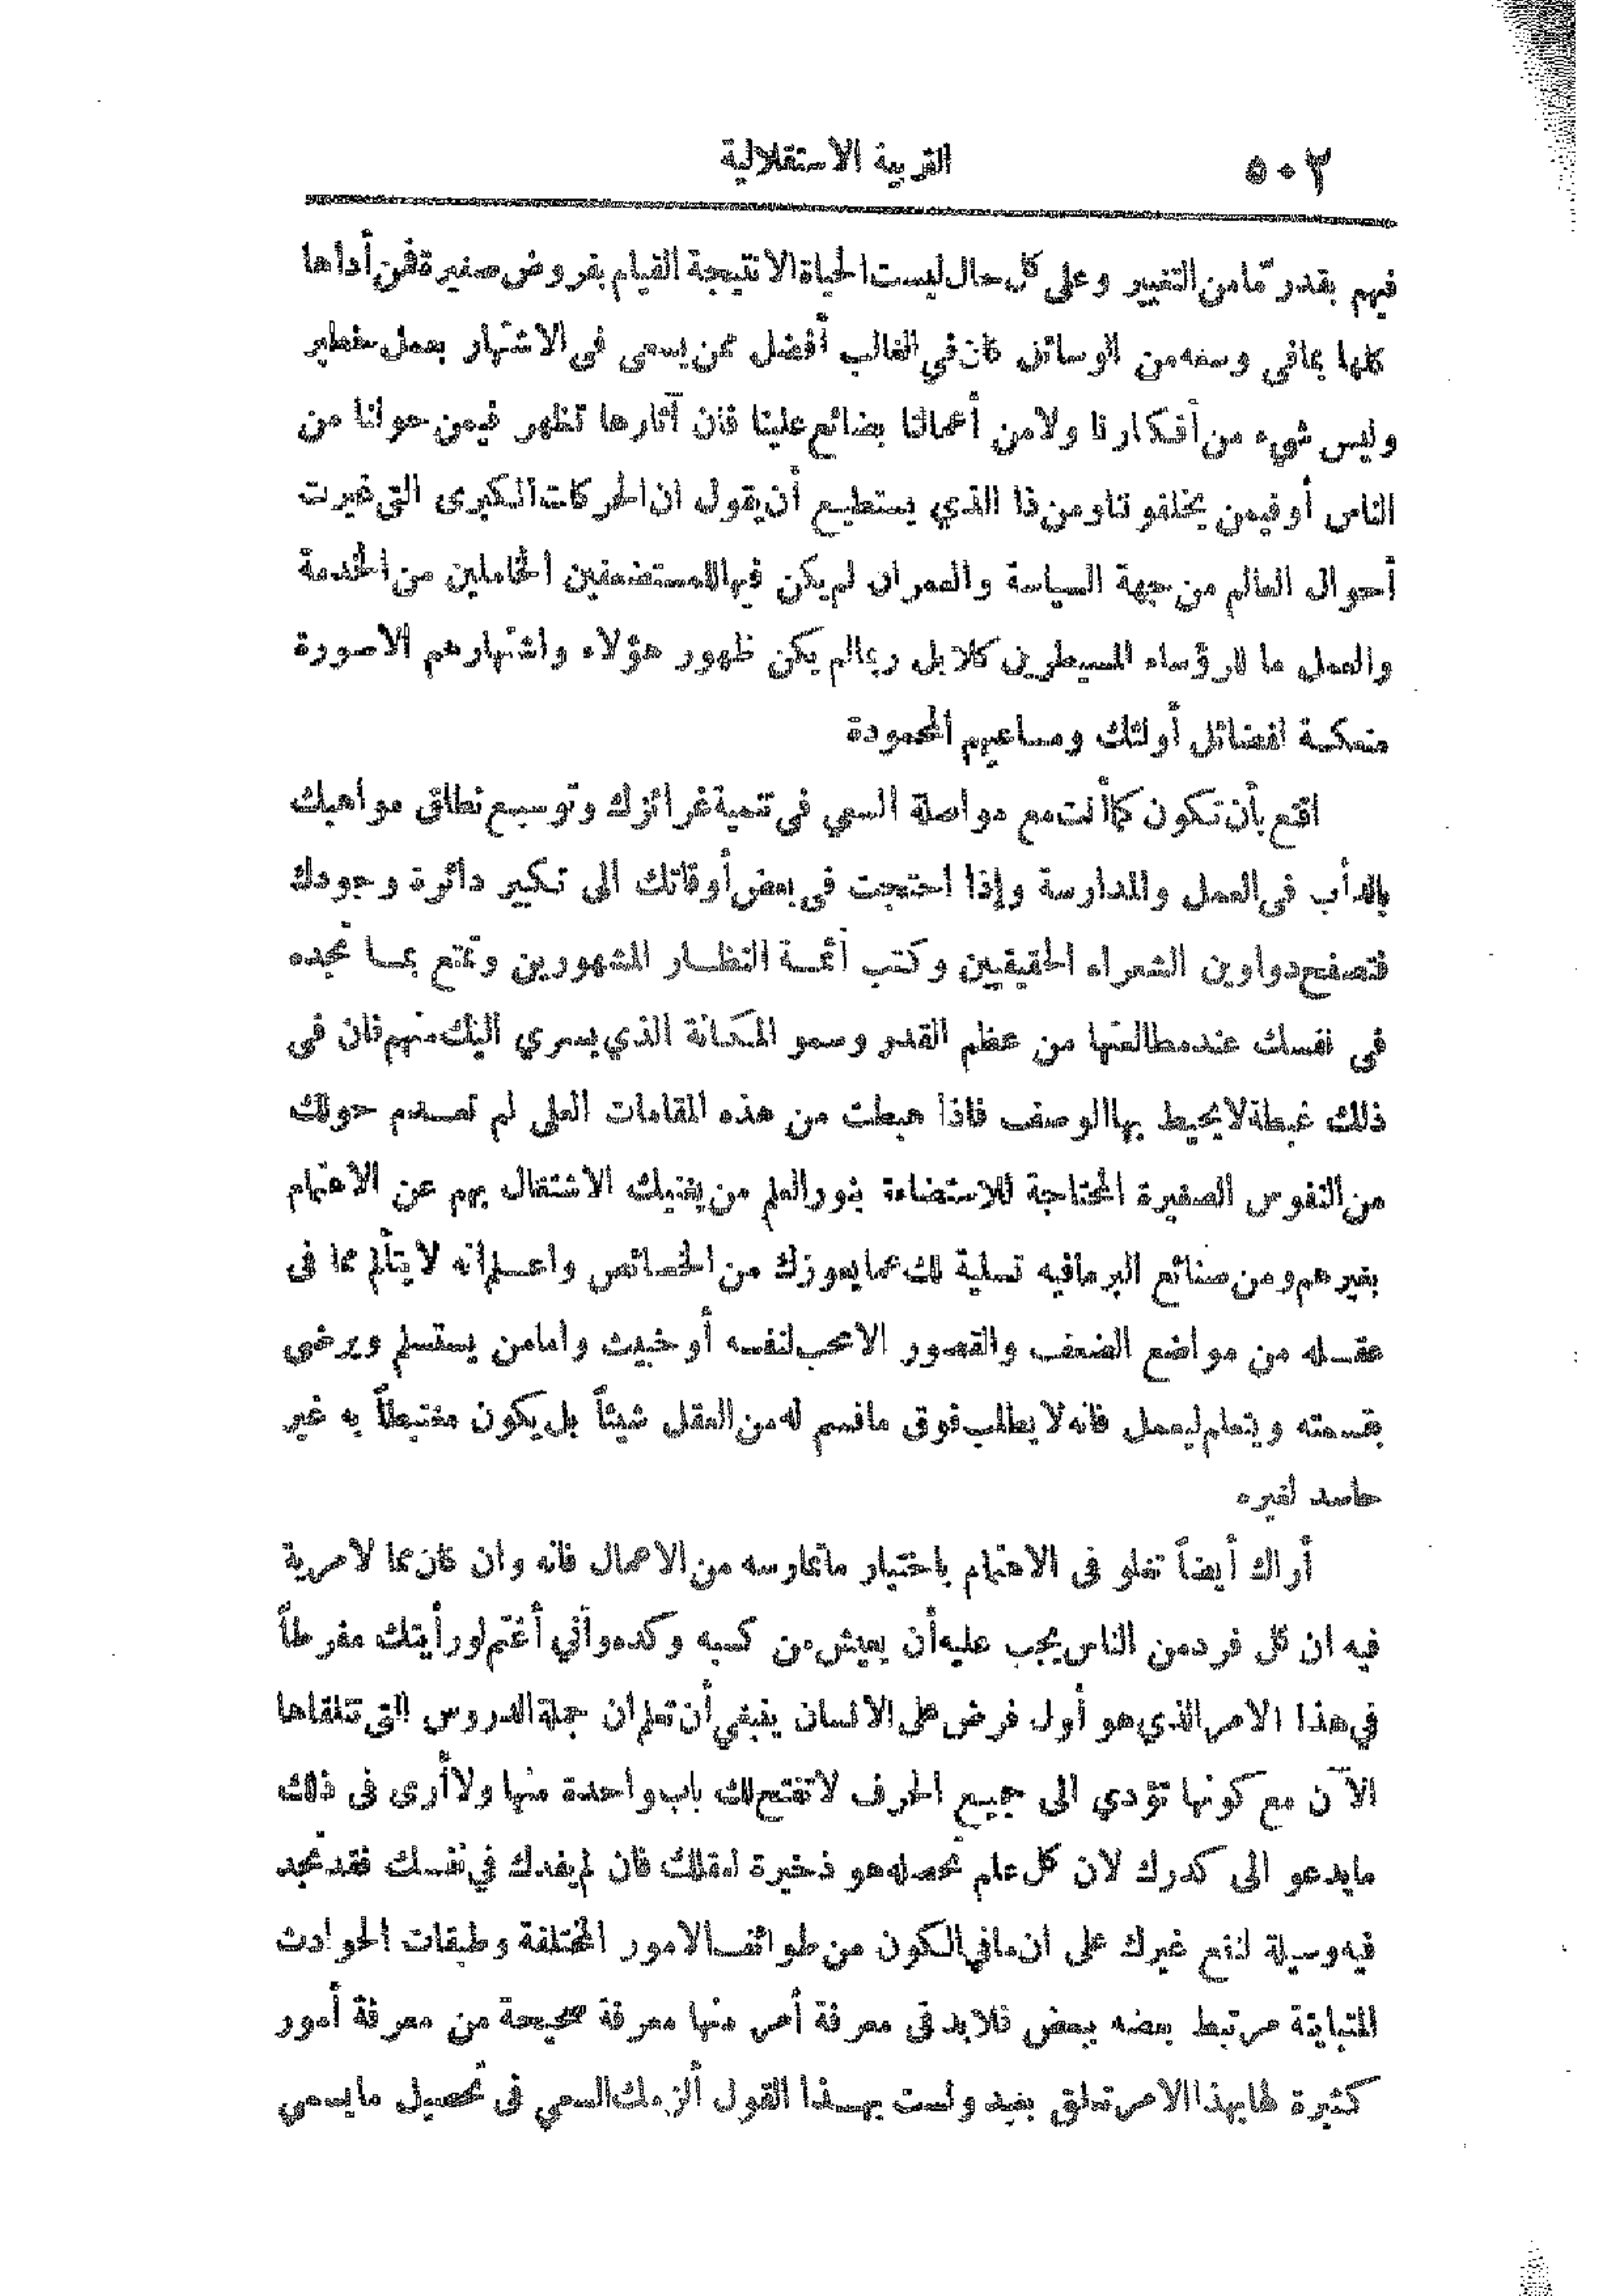 ٥٠٢ التربية الاستقلالية
فيهم بقدر مّا من التغيير وعلى كل حال ليست الحياة الا نتيجة القيام بفروض صغيرة فمن أداها
كلها بما في وسعه من الوسائل كان في الغالب أفضل ممن يسعى في الاشتهار بعمل خطير
وليس شيء من أفكارنا ولا من أعمالنا بضائع علينا فان آثارها تظهر فيمن حولنا من
الناس أو فيمن يخلفوننا ومن ذا الذي يستطيع أن يقول ان الحركات الكبرى التي غيرت
أحوال العالم من جهة السياسة والعمران لم يكن فيها للمستضعفين الخاملين من الخدمة
والعمل ما للرؤساء المسيطرين كلا بل ربما لم يكن ظهور هؤلاء واشتهارهم الا صورة
منعكسة لفضائل أولئك ومساعيهم المحمودة
اقنع بأن تكون كما أنت مع مواصلة السعي في تنمية غرائزك وتوسيع نطاق مواهبك
بالدأب في العمل والمدارسة وإذا احتجت في بعض أوقاتك الى تكبير دائرة وجودك
فتصفح دواوين الشعراء الحقيقيين وكتب أئمة النظار المشهورين وتمتع بما تجده
في نفسك عند مطالعتها من عظم القدر وسمو المكانة الذي يسري اليك منهم فان في
ذلك غبطة لا يحيط بها الوصف فاذا هبطت من هذه المقامات العلى لم تعدم حولك
من النفوس الصغيرة المحتاجة للاستضاءة بنور العلم من يغنيك الاشتغال بهم عن الاهتمام
بغيرهم ومن صنائع البر ما فيه تسلية لك عما يعوزك من الخصائص واعلم انه لا يتألم مما في
عقله من مواضع الضعف والقصور الا محب لنفسه أو خبيث واما من يستسلم ويرضى
بقسمته ويتعلم ليعمل فانه لا يطلب فوق ما قسم له من العقل شيئاً بل يكون مغتبطاً به غير
حاسد لغيره
أراك أيضاً تغلو في الاهتمام باختيار ما تمارسه من الاعمال فانه وان كان مما لا مرية
فيه ان كل فرد من الناس يجب عليه أن يعيش من كسبه وكده وأني أغتم لو رأيتك مفرطاً
في هذا الامر الذي هو أول فرض على الانسان ينبغي أن تعلم ان جملة الدروس التي تتلقاها
الآن مع كونها تؤدي الى جميع الحرف لا تفتح لك باب واحدة منها ولا أرى في ذلك
ما يدعو الى كدرك لان كل علم تحصله هو ذخيرة لعقلك فان لم يفدك في نفسك فقد تجد
فيه وسيلة لنفع غيرك على ان ما في الكون من طوائف الامور المختلفة وطبقات الحوادث
المتباينة مرتبط بعضه ببعض فلا بد في معرفة أمر منها معرفة صحيحة من معرفة أمور
كثيرة لها بهذا الامر تعلق بعيد ولست بهذا القول ألزمك السعي في تحصيل ما يسمى